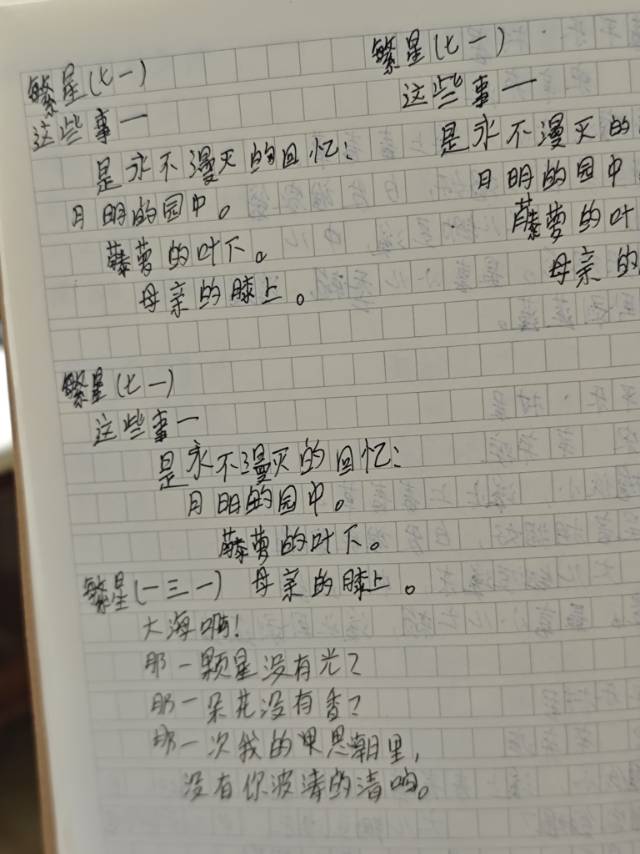 繁星(七一)
这些事一
是永不漫灭的回忆:
月明的园中。
藤萝的叶下。
母亲的膝上。
繁星(七一)
这些事一
是永不漫灭的
月明的园中
藤萝的叶
母亲的
繁星(七一)
这些事一
是永不漫灭的回忆:
月明的园中。
藤萝的叶下。
母亲的膝上。
繁星(一三一)
大海啊!
那一颗星没有光?
那一朵花没有香?
那一次我的思朝里,
没有你波涛的清响。